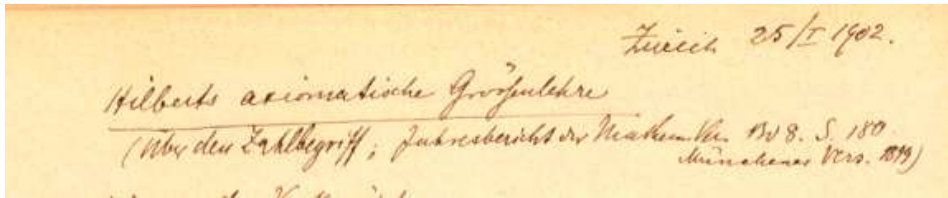 Zürich 25/I 1902.
Hilberts axiomatische Größenlehre
(Über den Zahlbegriff; Jahresbericht der Mathem. Ver. Bd 8. S. 180
Münchener Vers. 1899)